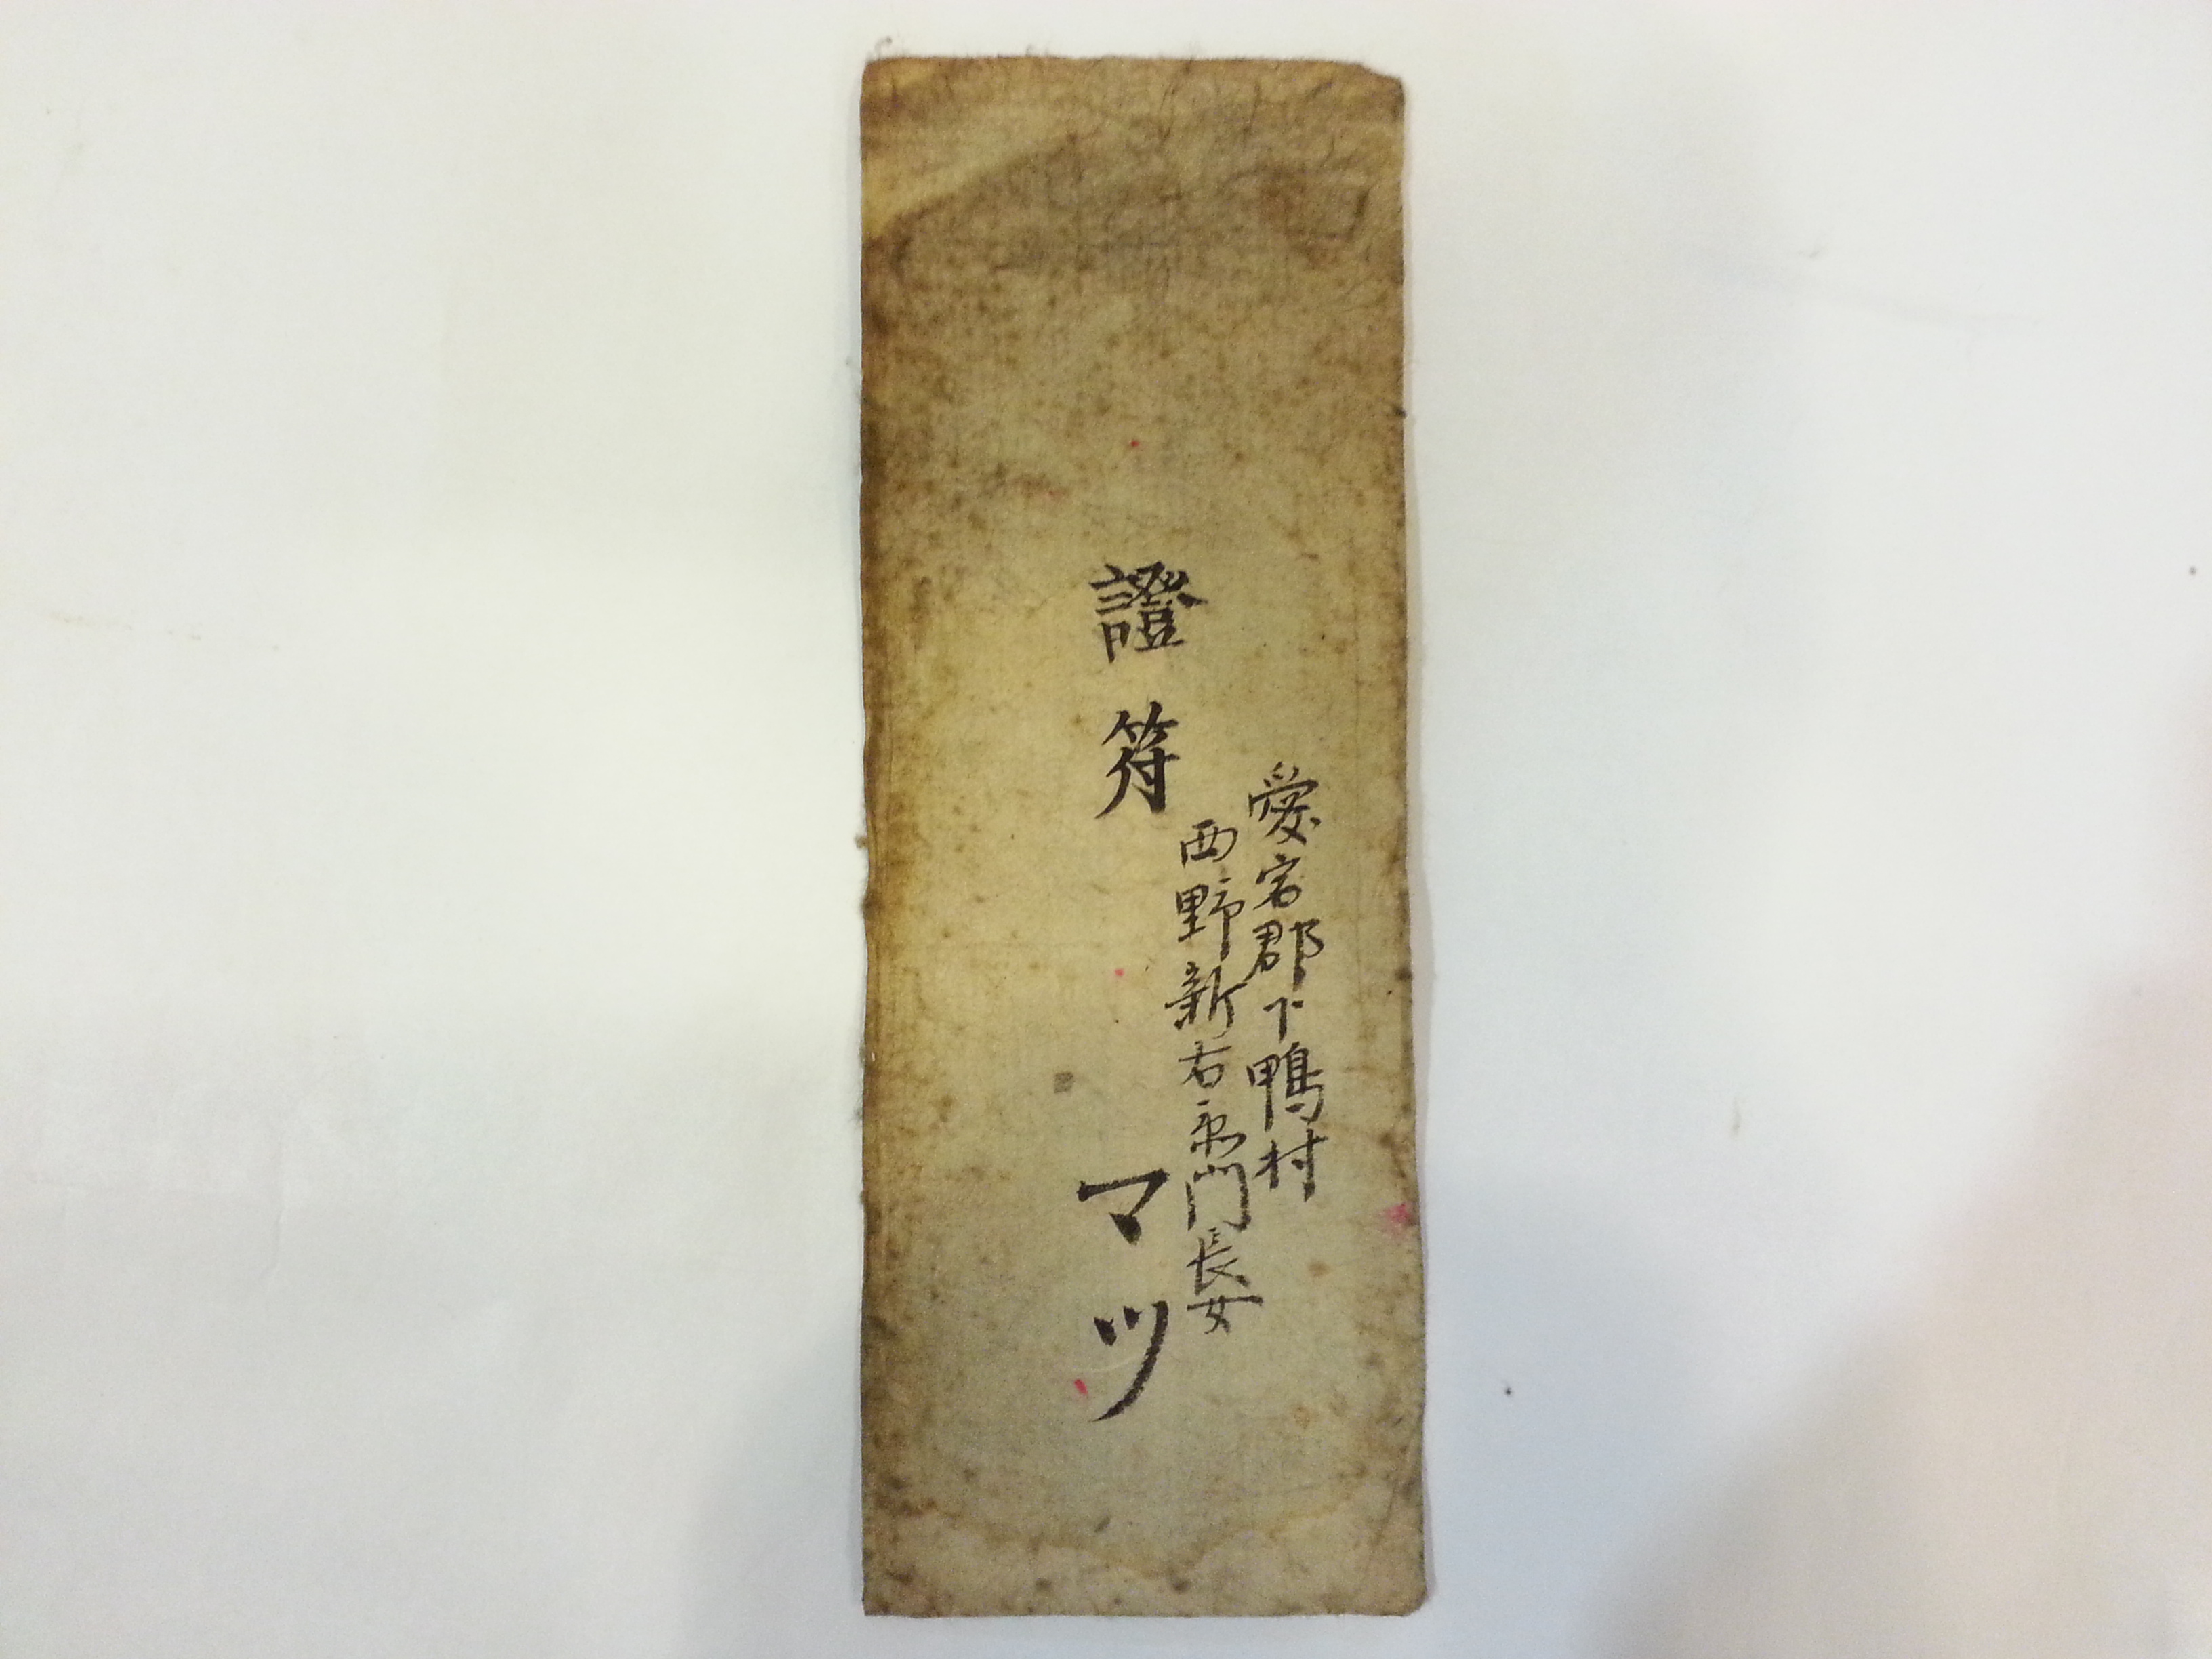 愛宕郡下鴨村
西野新右衛門長女
證符
マツ